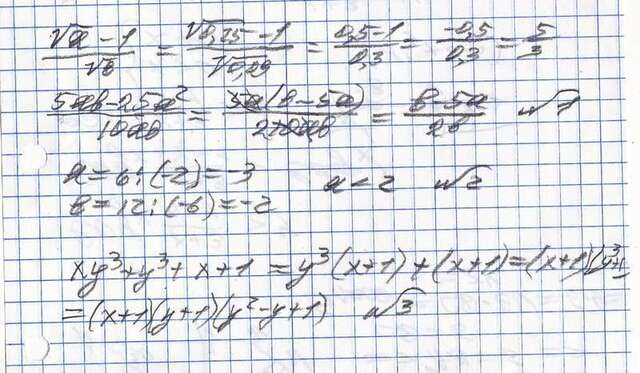 (√a - 1)/√b = (√0,25 - 1)/√0,09 = (0,5 - 1)/0,3 = (-0,5)/0,3 = 5/3
(5ab - 25a²)/10ab = 5a(b - 5a)/2·10ab = (b - 5a)/2b √1
a = 6 : (-2) = -3
a < 2 √2
b = 12 : (-6) = -2
xy³ + y³ + x + 1 = y³(x+1) + (x+1) = (x+1)(y³+1)
= (x+1)(y+1)(y² - y + 1) √3